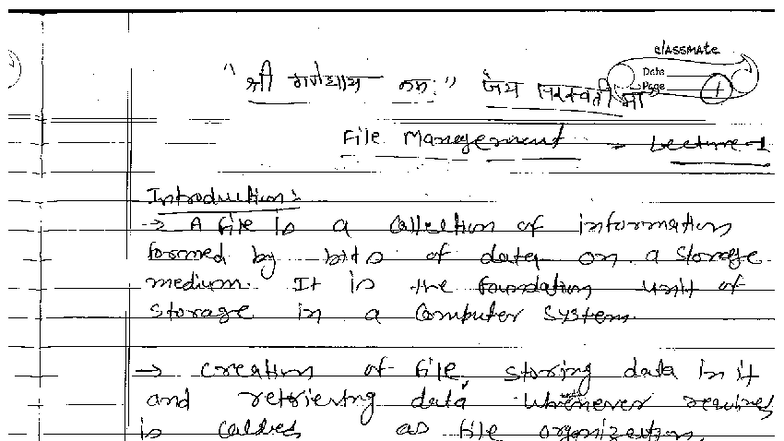 classmate
Date
Page 1
"श्री गणेशाय नमः" जय सरस्वती माँ
File Management → Lecture-1
Introduction:
→ A file is a collection of information
formed by bits of data on a storage
medium. It is the foundation unit of
storage in a computer system.
→ creation of file, storing data in it
and retrieving data whenever required
is called as file organization.